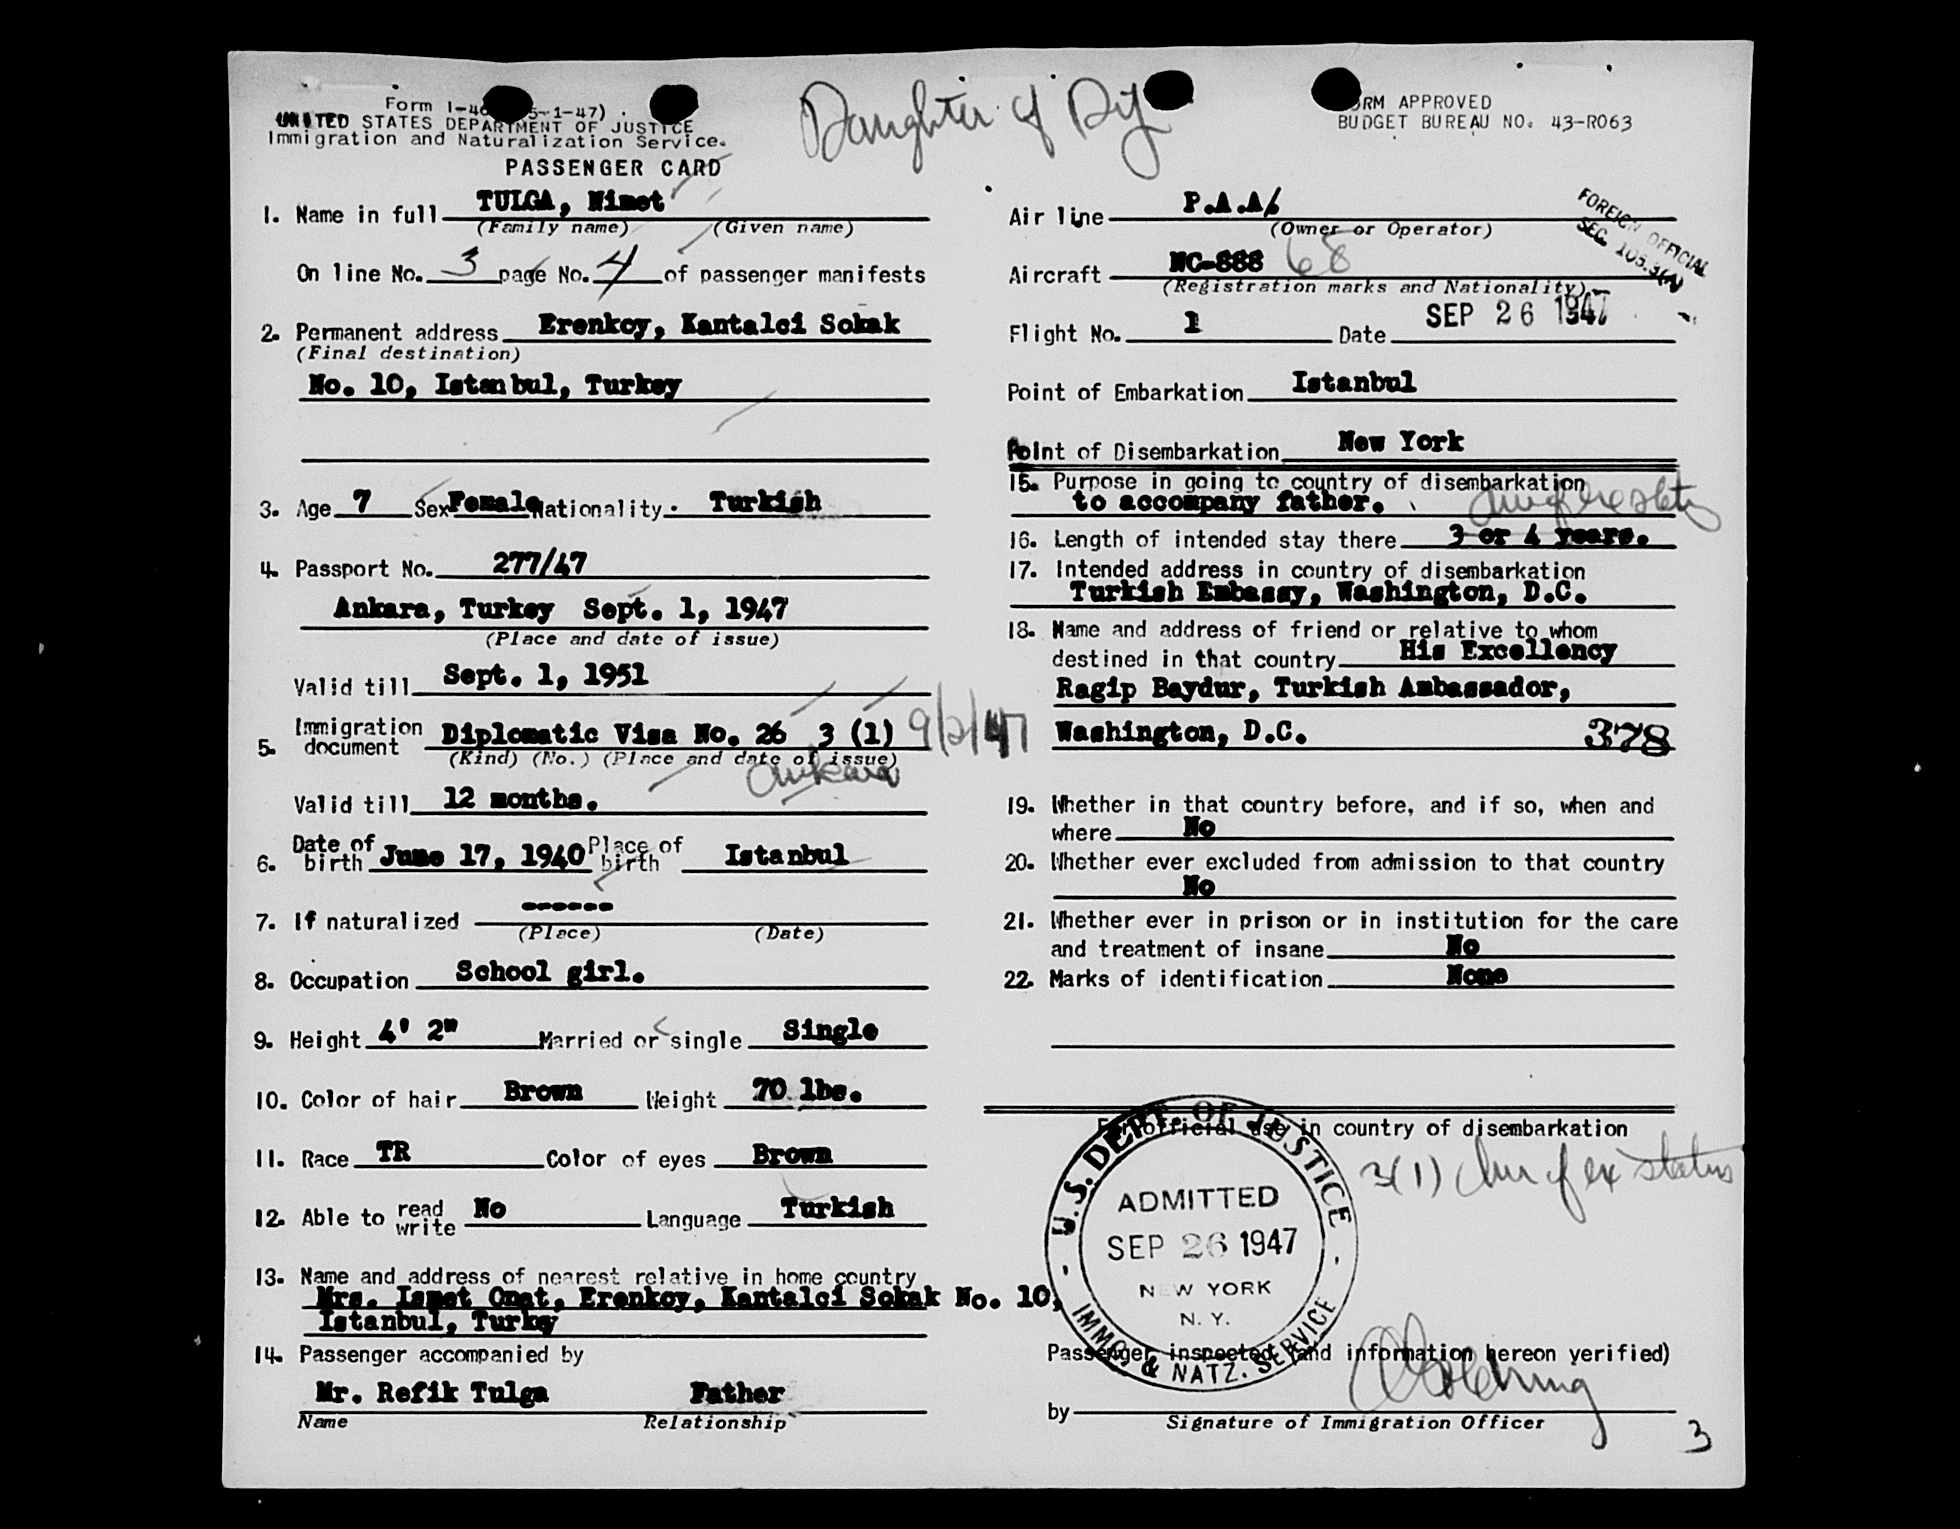 Daughter of
Form I-4 5-1-47)
UNITED STATES DEPARTMENT OF JUSTICE
Immigration and Naturalization Service.
PASSENGER CARD
FORM APPROVED
BUDGET BUREAU NO. 43-R063
1. Name in full TULGA, Nimet
(Family name) (Given name)
On line No. 3 page No. 4 of passenger manifests
2. Permanent address Erenkoy, Kantalci Sokak
(Final destination)
No. 10, Istanbul, Turkey
3. Age 7 Sex Female Nationality Turkish
4. Passport No. 277/47
Ankara, Turkey Sept. 1, 1947
(Place and date of issue)
Valid till Sept. 1, 1951
5. Immigration document Diplomatic Visa No. 26 3 (1) 9/2/47
(Kind) (No.) (Place and date of issue)
Ankara
Valid till 12 months.
6. Date of birth June 17, 1940 Place of birth Istanbul
7. If naturalized ------
(Place) (Date)
8. Occupation School girl.
9. Height 4' 2" Married or single Single
10. Color of hair Brown Weight 70 lbs.
11. Race TR Color of eyes Brown
12. Able to read write No Language Turkish
13. Name and address of nearest relative in home country
Mrs. Ismet Onat, Erenkoy, Kantalci Sokak No. 10,
Istanbul, Turky
14. Passenger accompanied by
Mr. Refik Tulga Father
Name Relationship
Air line P.A.A.
(Owner or Operator)
FOREIGN OFFICIAL
SEC. 103.3(A)
Aircraft NC-888 68
(Registration marks and Nationality)
Flight No. 1 Date SEP 26 1947
Point of Embarkation Istanbul
Point of Disembarkation New York
15. Purpose in going to country of disembarkation
to accompany father.
16. Length of intended stay there 3 or 4 years.
17. Intended address in country of disembarkation
Turkish Embassy, Washington, D.C.
18. Name and address of friend or relative to whom
destined in that country His Excellency
Ragip Baydur, Turkish Ambassador,
Washington, D.C. 378
19. Whether in that country before, and if so, when and
where No
20. Whether ever excluded from admission to that country
No
21. Whether ever in prison or in institution for the care
and treatment of insane No
22. Marks of identification None
For official use in country of disembarkation
3(1) dur of ex status
U.S. DEPT. OF JUSTICE
ADMITTED
SEP 26 1947
NEW YORK
N. Y.
IMMG. & NATZ. SERVICE
Passenger inspected (and information hereon verified)
by
Signature of Immigration Officer
3